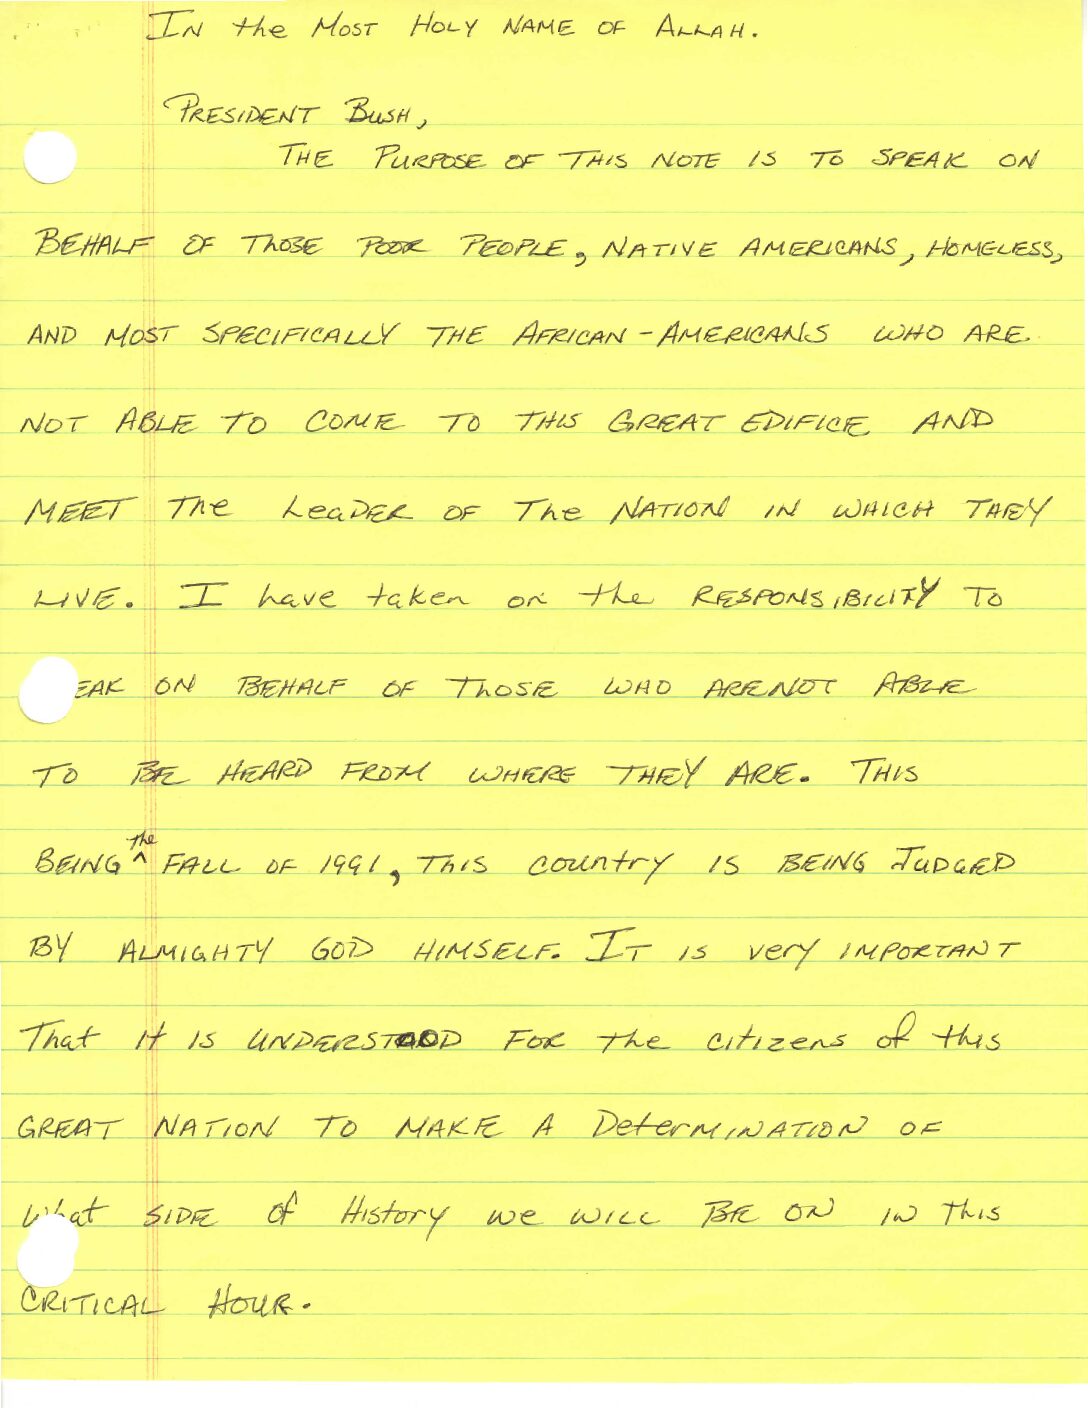 IN the MOST HOLY NAME OF ALLAH.
PRESIDENT BUSH,
THE PURPOSE OF THIS NOTE IS TO SPEAK ON
BEHALF OF THOSE POOR PEOPLE, NATIVE AMERICANS, HOMELESS,
AND MOST SPECIFICALLY THE AFRICAN-AMERICANS WHO ARE
NOT ABLE TO COME TO THIS GREAT EDIFICE AND
MEET The LeaDER OF The NATION IN WHICH THEY
LIVE. I have taken on the RESPONSIBILITY TO
EAK ON BEHALF OF THOSE WHO ARE NOT ABLE
TO BE HEARD FROM WHERE THEY ARE. THIS
BEING the FALL OF 1991, THIS country IS BEING JUDGED
BY ALMIGHTY GOD HIMSELF. IT IS very IMPORTANT
That it IS UNDERSTOOD FOR the citizens of this
GREAT NATION TO MAKE A DeterMINATION OF
What SIDE of History we WILL BE ON IN This
CRITICAL HOUR.